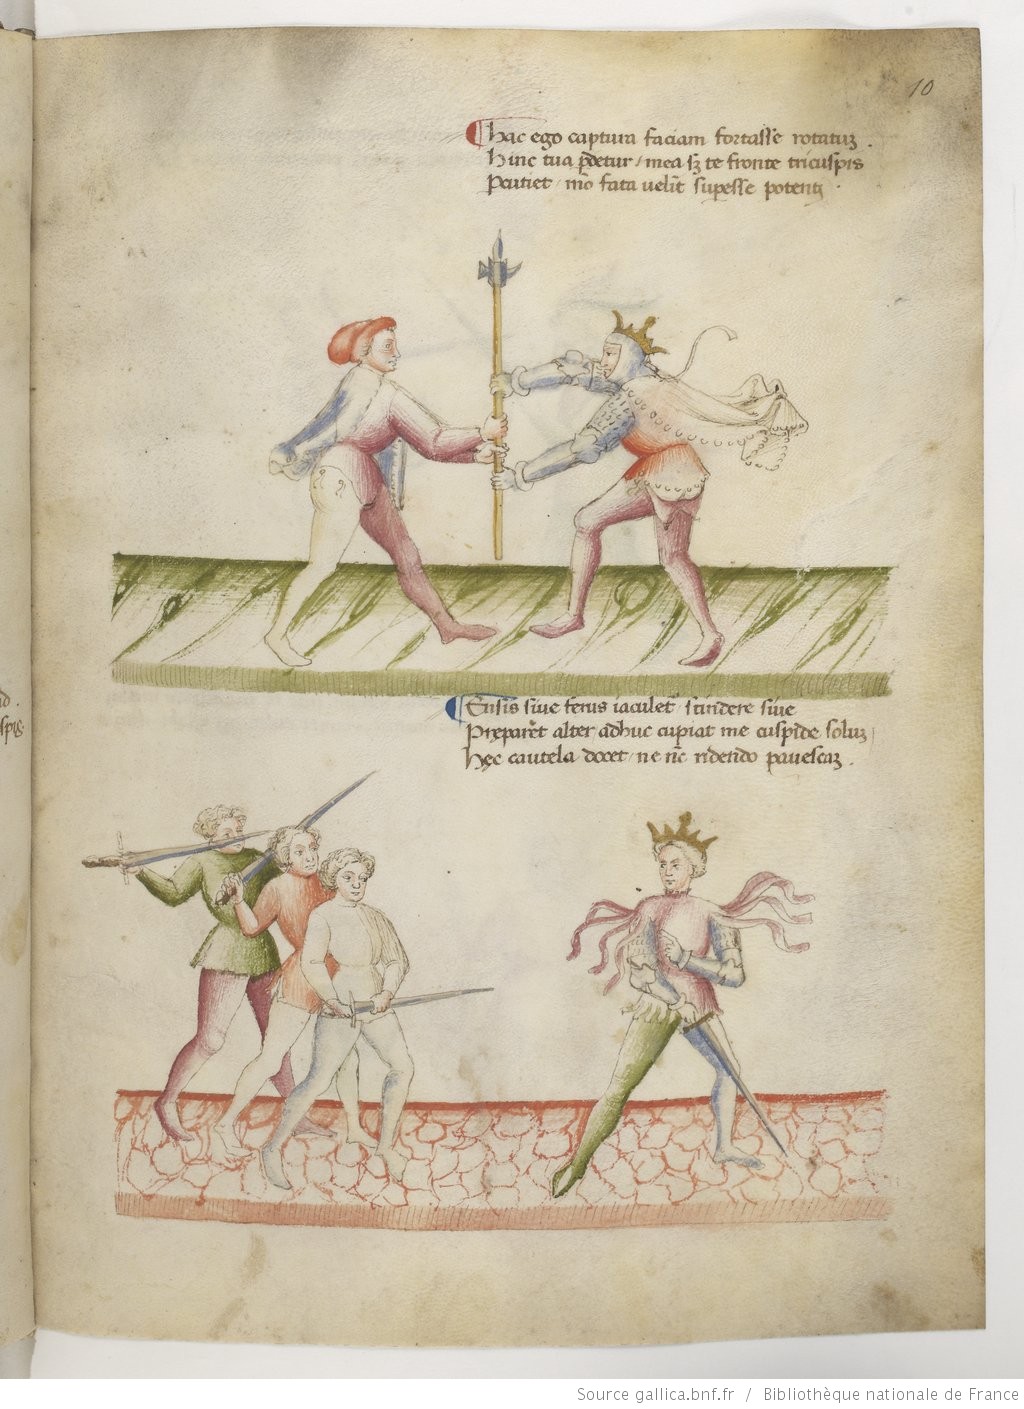 10
hac ego captura faciam fortasse rotatuꝫ .
hinc tua ꝑdetur / mea sꝫ te fronte tricuspis
Pcutiet / mō fata velīt supesse potenti .
Ensis sive ferus iaculet᷑ scindere sive
Prepar&t alter adhuc cupiat me cuspide soluꝫ /
hęc cautela docet / ne nc̄ ridendo pavescaꝫ .
Source gallica.bnf.fr / Bibliothèque nationale de France